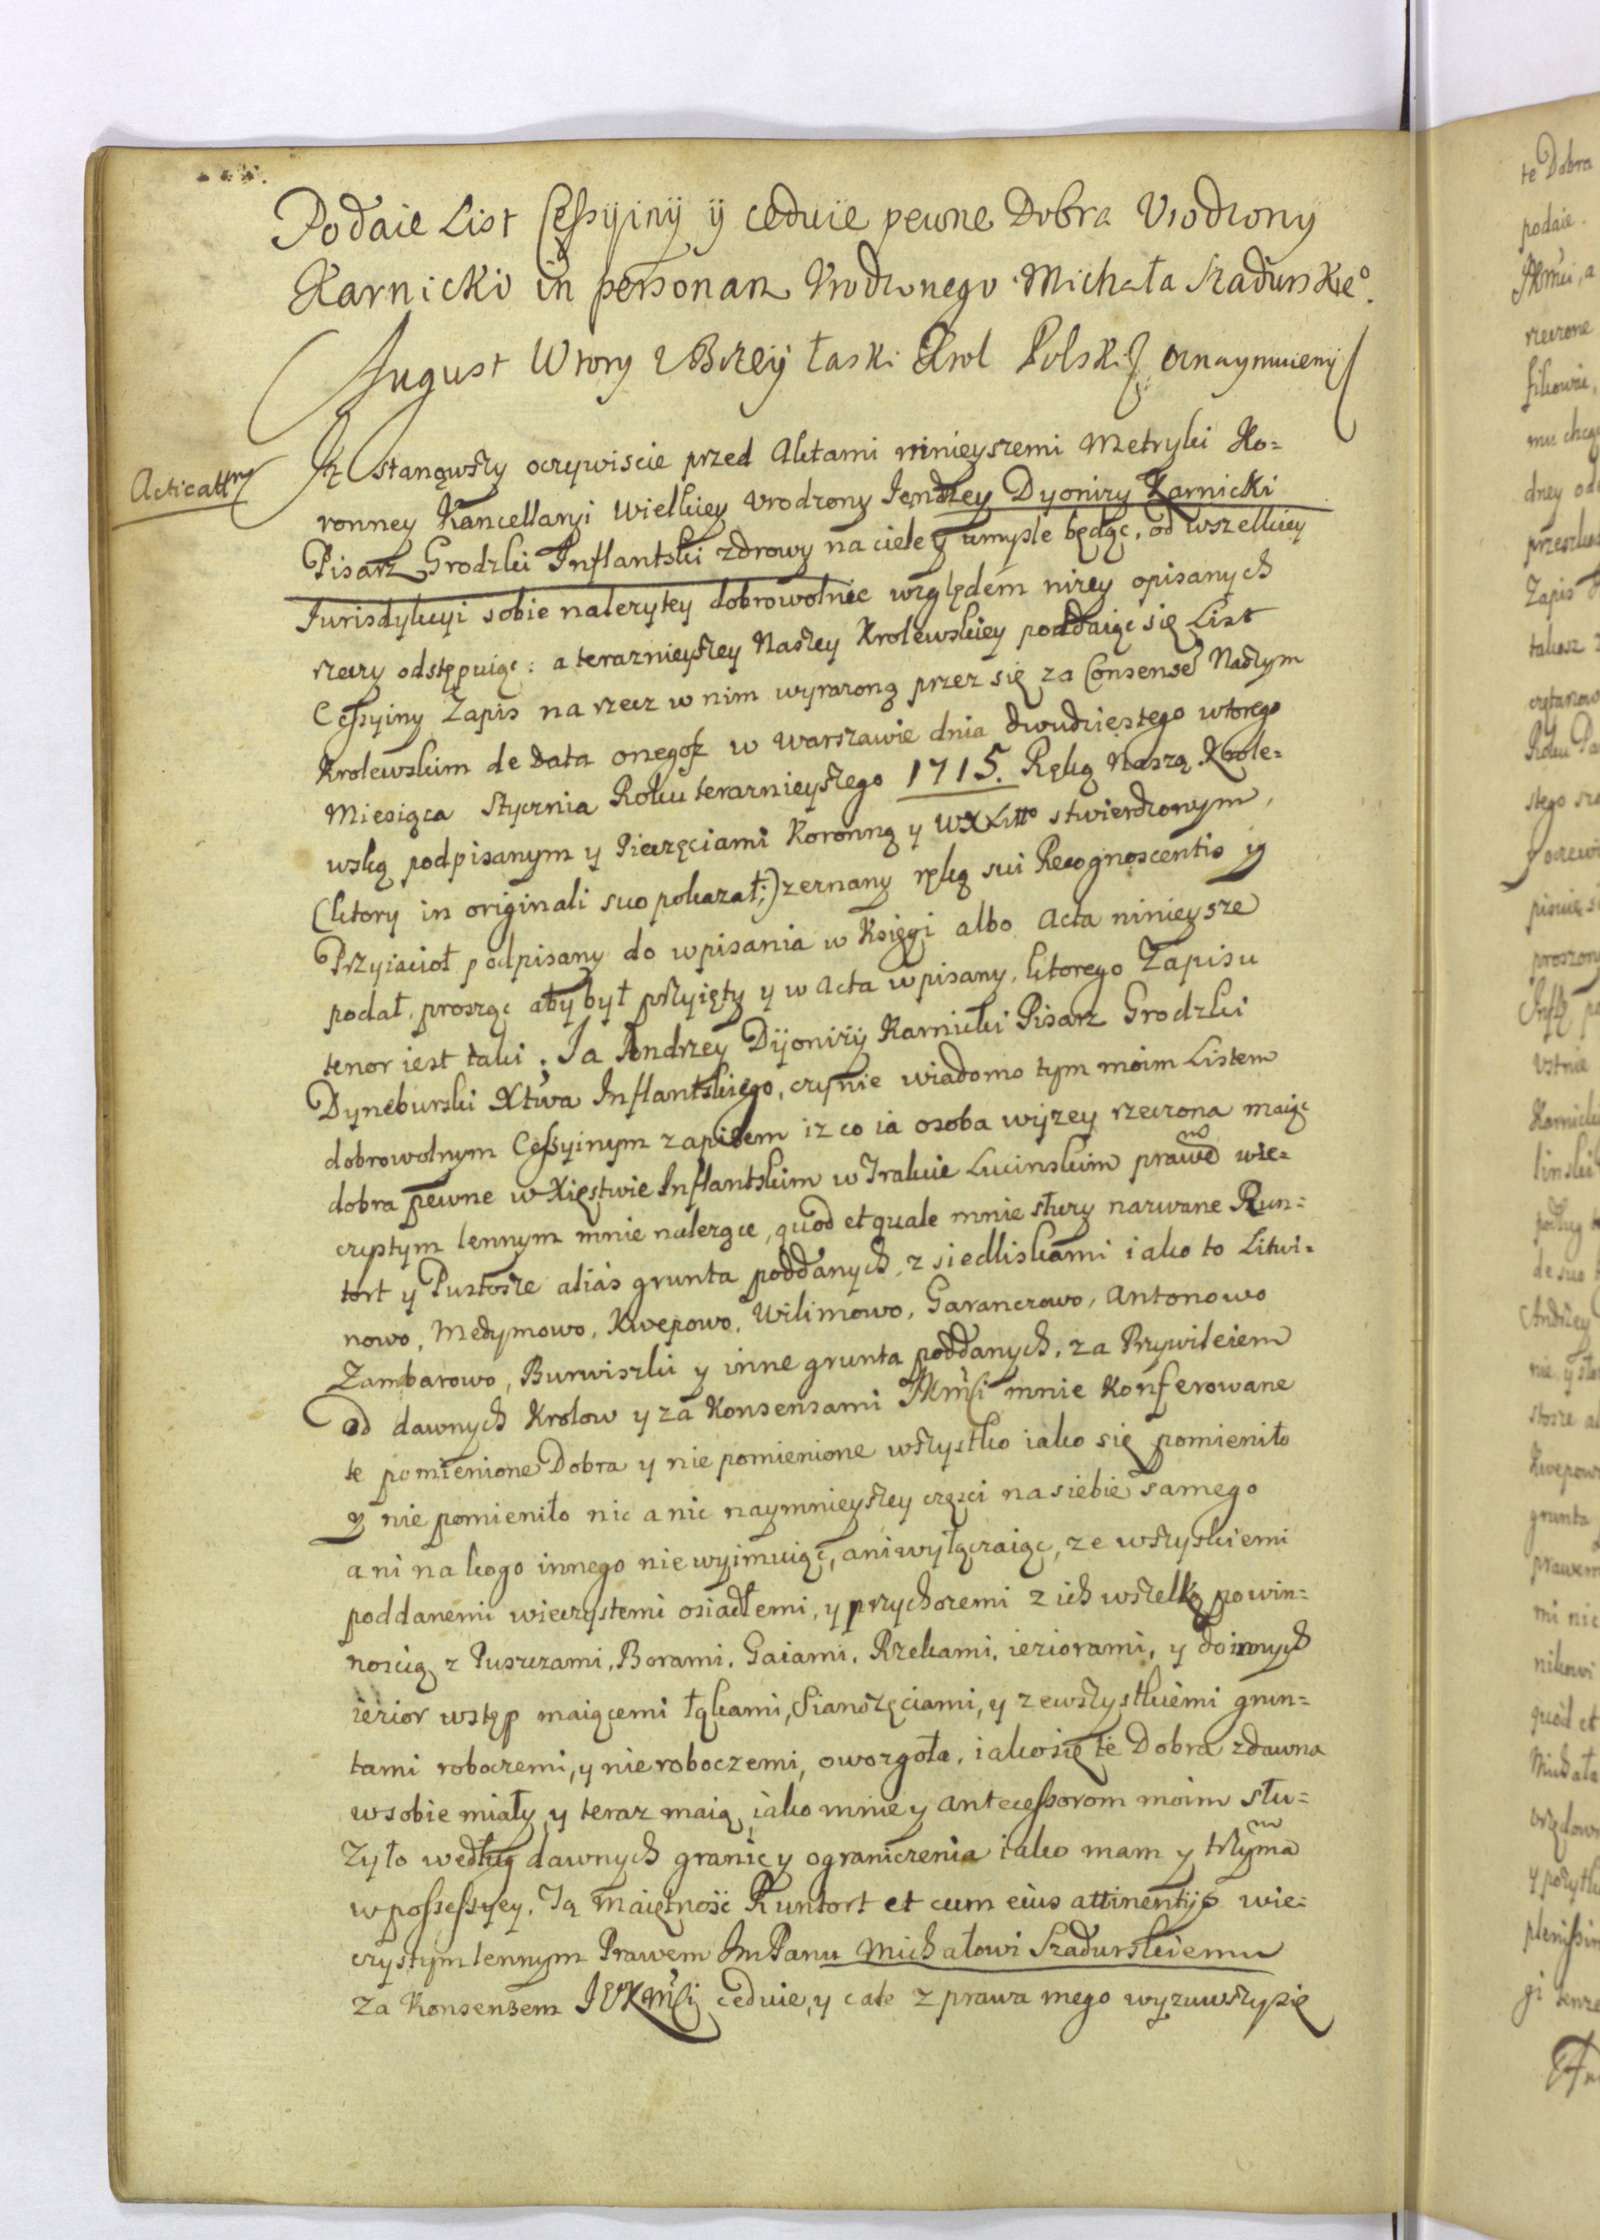 Podaie List Cessyiny y ceduie pewne Dobra Vrodzony
Karnicki in personam Vrodzonego Michała Szadurskie°.
August Wtory z Bozey Łaski Krol Polski oznaymuiemy
Acticattm
Iz stanąwszy oczywiscie przed Aktami ninieyszemi Metryki Ko=
ronney Kancellaryi Wielkiey Vrodzony Jendrzey Dyonizy Karnicki
Pisarz Grodzki Inflantski zdrowy na ciele y umysle będąc, od wszelkiey
Jurisdykcyi sobie nalezytey dobrowolnie względem nizey opisanych
rzeczy odstępuiąc: a teraznieyszey Naszey Krolewskiey poddaiąc się List
Cessyiny Zapis na rzecz w nim wyrazoną przez się za Consensẽ Naszym
Krolewskim de Data onegoż w Warszawie dnia dwudziestego wtorego
Miesiąca Stycznia Roku teraznieyszego 1715. Ręką Naszą Krole=
wską podpisanym y Pieczęciami Koronną y WXLitto stwierdzonym,
(ktory in originali suo pokazał;) zeznany ręką sui Recognoscentis y
Przyiacioł podpisany do wpisania w Księgi albo Acta ninieysze
podał, prosząc aby był przyięty y w Acta wpisany, ktorego Zapisu
tenor iest taki; Ja Andrzey Dyonizy Karnicki Pisarz Grodzki
Dyneburski Xtwa Inflantskiego, czynie wiadomo tym moim Listem
dobrowolnym Cessyinym zapisem iz co ia osoba wyzey rzeczona maiąc
dobra pewne w Xięstwie Inflantskim w Trakcie Lucinskim prawẽ wie=
czystym lennym mnie nalezące, quod et quale mnie słuzy nazwane Run=
tort y Pustosze alias grunta poddanych, z siedliskami iako to Litwi=
nowo, Medymowo, Kwepowo, Wilimowo, Garanczowo, Antonowo
Zambarowo, Burwiszki y inne grunta poddanych, za Przywileiem
od dawnych Krolow y za Konsensami JKMsci mnie Konferowane
te pomienione Dobra y nie pomienione wszystko iako się pomieniło
y nie pomieniło nic a nic naymnieyszey części na siebie samego
ani na kogo innego nie wyimuiąc, ani wyłączaiąc, ze wszystkiemi
poddanemi wieczystemi osiadłemi, y przychozemi z ich wszelką powin=
noscią z Puszczami, Borami, Gaiami, Rzekami, ieziorami, y do innych
iezior wstęp maiącemi łąkami, Sianożęciami, y ze wszystkiemi grun=
tami roboczemi, y nieroboczemi, owozgoła, iako się te Dobra zdawna
w sobie miały y teraz maią, iako mnie y antecessorom moim słu=
zyło według dawnych granic y ograniczenia iako mam y trzymã
w possessyey. Tą Maiętność Runtort et cum eius attinentijs wie=
czystym lennym Prawem Jm Panu Michałowi Szadurskiemu
za Konsensem JEKMsci ceduie, y cale z prawa mego wyzuwszy się